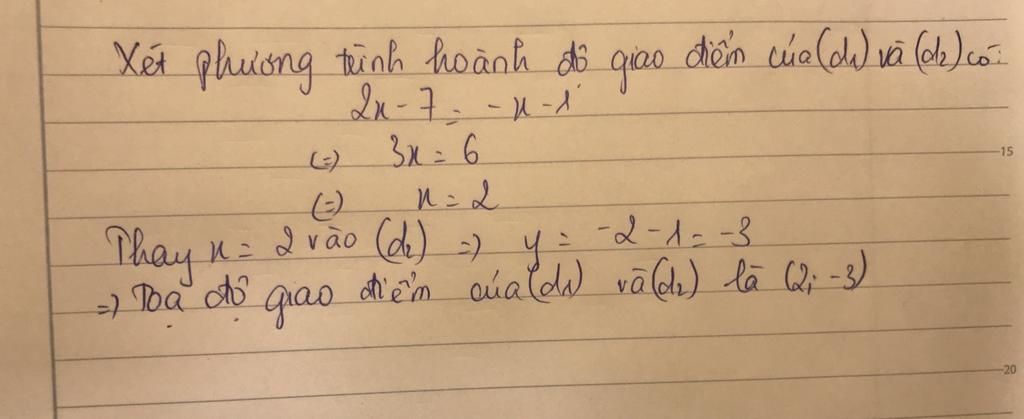 Xét phương trình hoành độ giao điểm của (d1) và (d2) có:
2x - 7 = -x - 1
(=) 3x = 6
15
(=) x = 2
Thay x = 2 vào (d2) => y = -2 - 1 = -3
=> Toạ độ giao điểm của (d1) và (d2) là (2; -3)
20